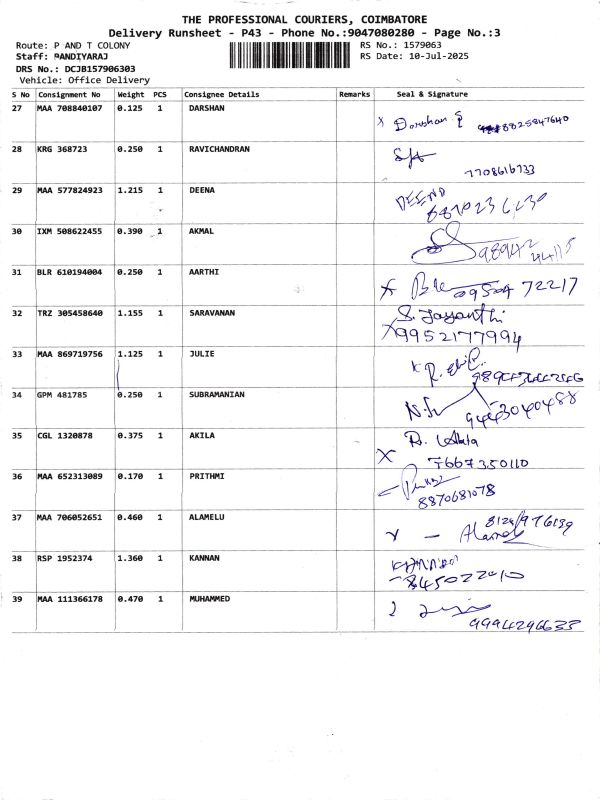 THE PROFESSIONAL COURIERS, COIMBATORE
Delivery Runsheet - P43 - Phone No.:9047080280 - Page No.:3
Route: P AND T COLONY RS No.: 1579063
Staff: PANDIYARAJ RS Date: 10-Jul-2025
DRS No.: DCJB157906303
Vehicle: Office Delivery
S No Consignment No Weight PCS Consignee Details Remarks Seal & Signature
27 MAA 708840107 0.125 1 DARSHAN
X Darshan 8825847640
28 KRG 368723 0.250 1 RAVICHANDRAN
7708616733
29 MAA 577824923 1.215 1 DEENA
30 IXM 508622455 0.390 1 AKMAL
98942 44115
31 BLR 610194004 0.250 1 AARTHI
X 09504 72217
32 TRZ 305458640 1.155 1 SARAVANAN
S. Jayanthi
X 9952177994
33 MAA 869719756 1.125 1 JULIE
34 GPM 481785 0.250 1 SUBRAMANIAN
9443040488
35 CGL 1320878 0.375 1 AKILA
X 7667350110
36 MAA 652313089 0.170 1 PRITHMI
8870681078
37 MAA 706052651 0.460 1 ALAMELU
38 RSP 1952374 1.360 1 KANNAN
39 MAA 111366178 0.470 1 MUHAMMED
9994296633